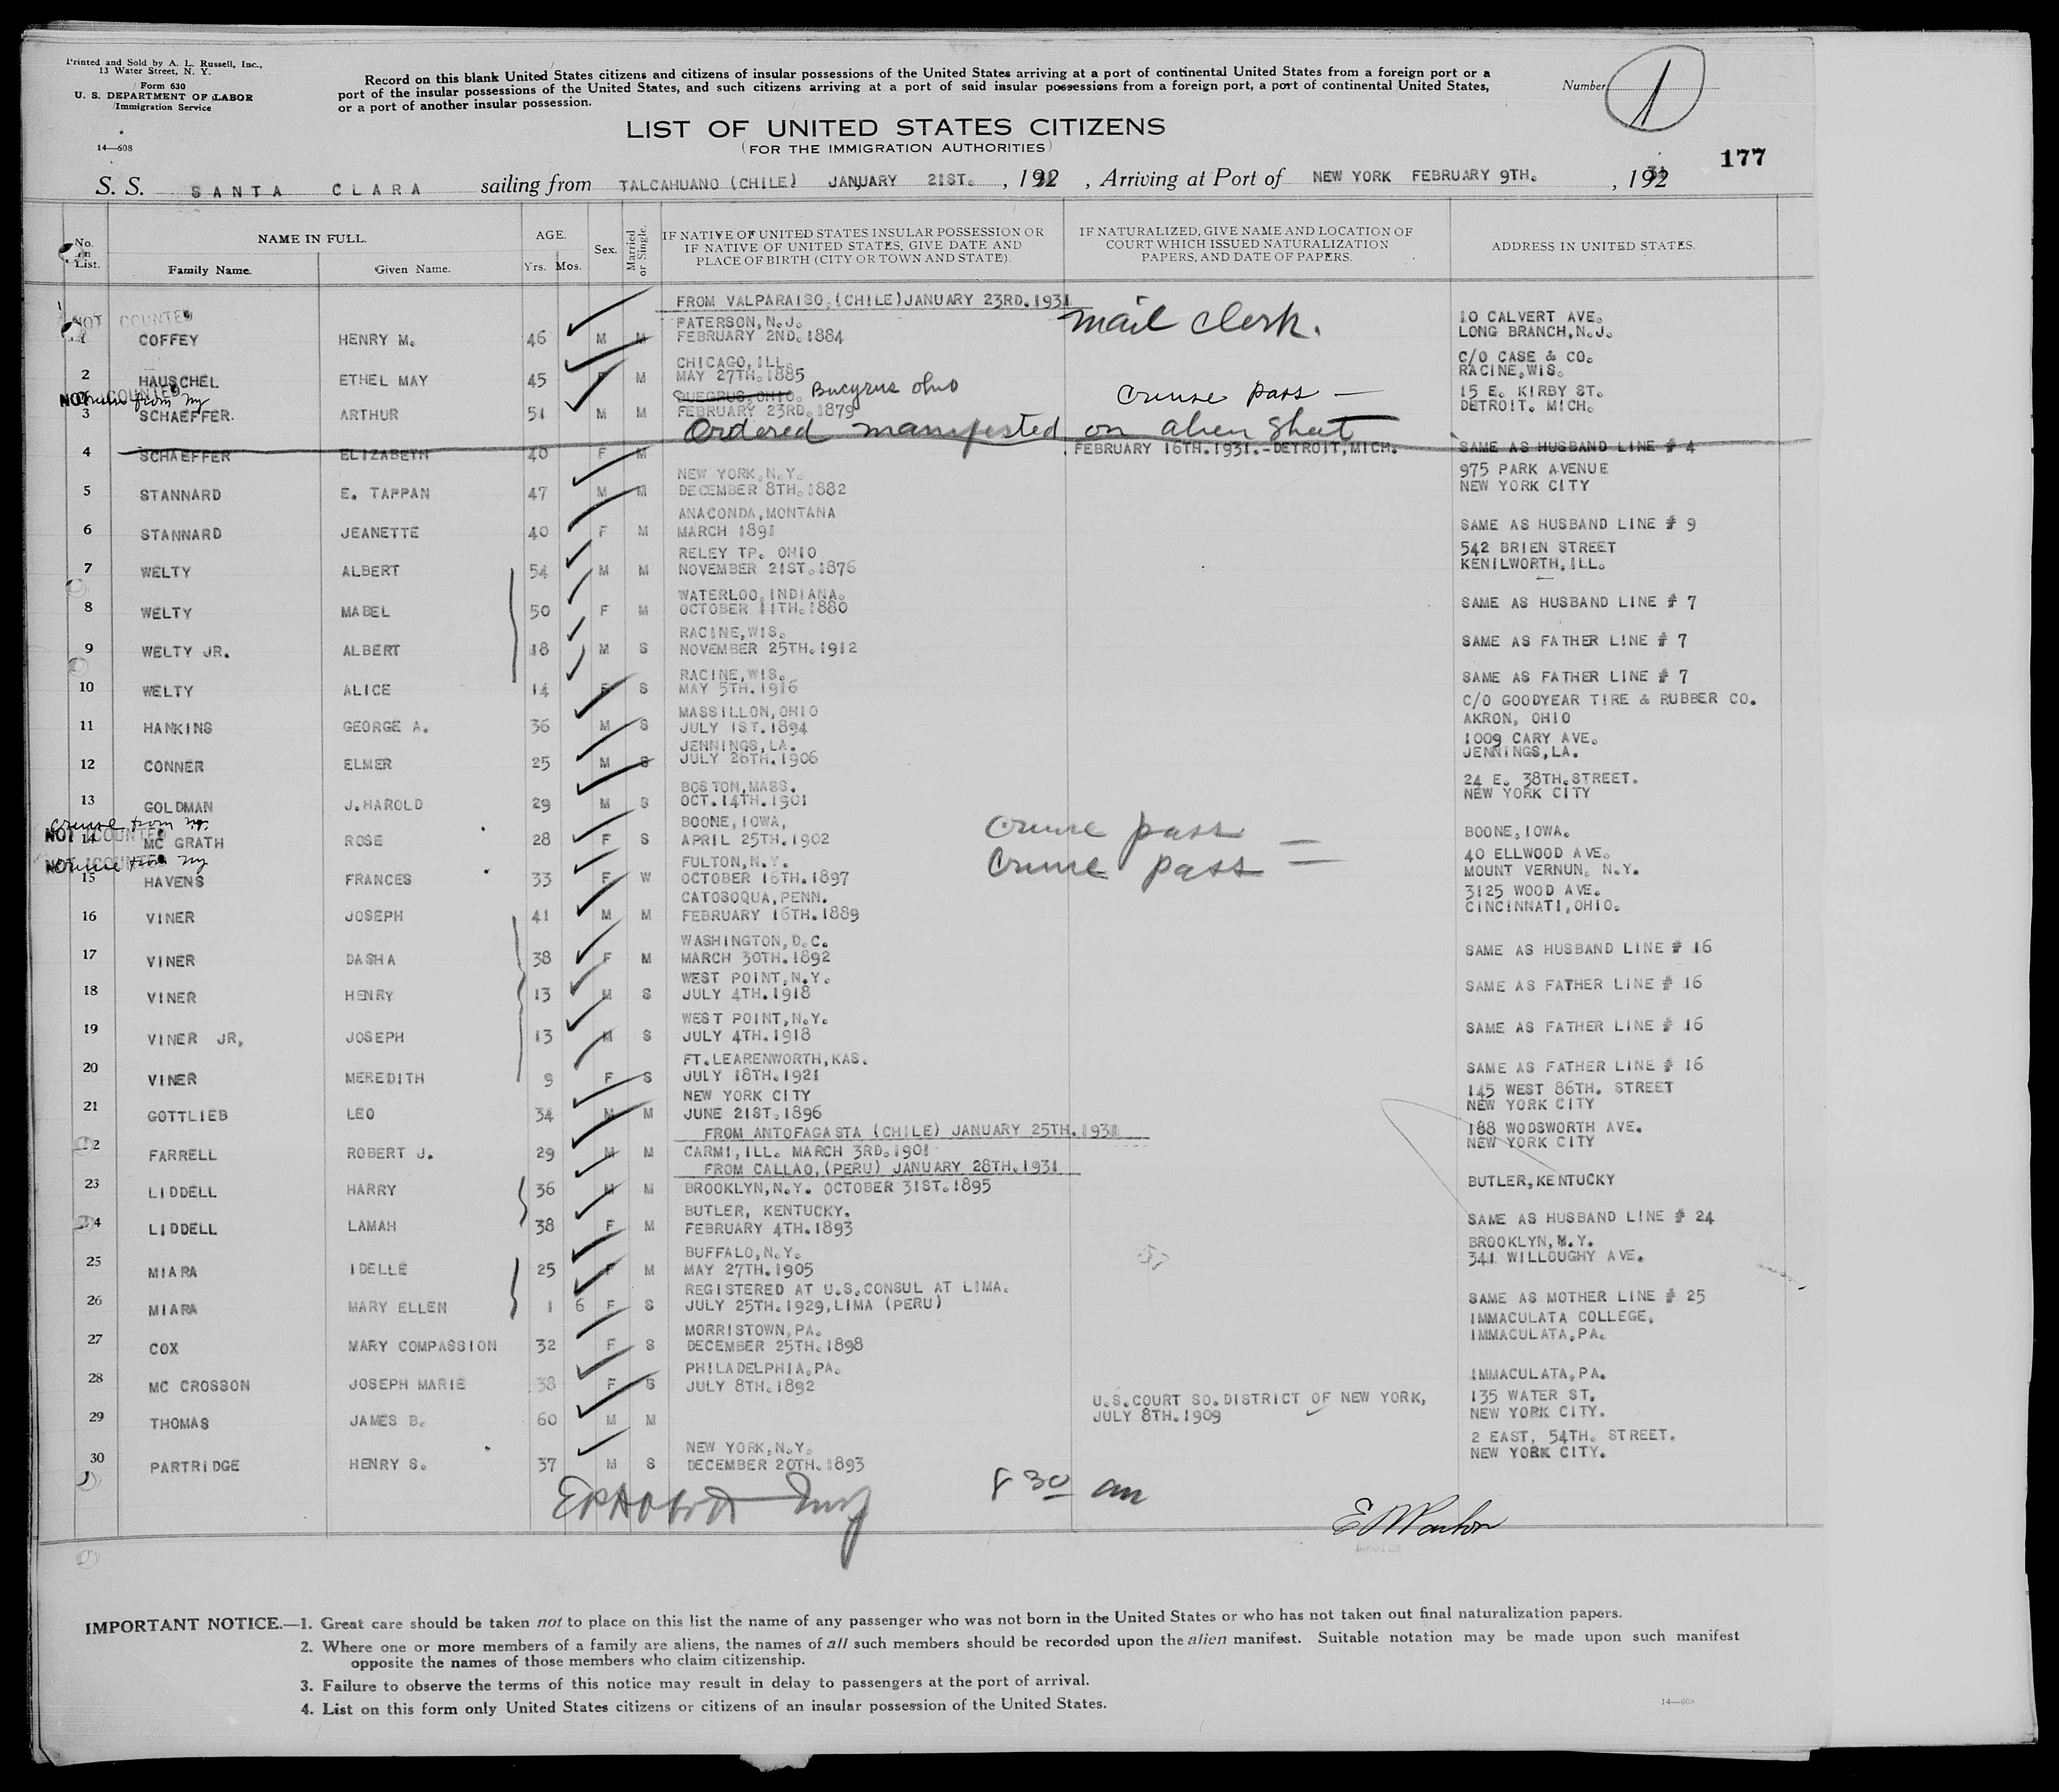 Printed and Sold by A. L. Russell, Inc.,
13 Water Street, N. Y.
Form 630
U. S. DEPARTMENT OF LABOR
Immigration Service
14—608
Record on this blank United States citizens and citizens of insular possessions of the United States arriving at a port of continental United States from a foreign port or a
port of the insular possessions of the United States, and such citizens arriving at a port of said insular possessions from a foreign port, a port of continental United States,
or a port of another insular possession.
Number 1
LIST OF UNITED STATES CITIZENS
(FOR THE IMMIGRATION AUTHORITIES)
177
S. S. SANTA CLARA sailing from TALCAHUANO (CHILE) JANUARY 21ST. , 192 , Arriving at Port of NEW YORK FEBRUARY 9TH. , 192
No. in List. NAME IN FULL. Family Name. Given Name. AGE. Yrs. Mos. Sex. Married or Single. IF NATIVE OF UNITED STATES INSULAR POSSESSION OR IF NATIVE OF UNITED STATES, GIVE DATE AND PLACE OF BIRTH (CITY OR TOWN AND STATE). IF NATURALIZED, GIVE NAME AND LOCATION OF COURT WHICH ISSUED NATURALIZATION PAPERS, AND DATE OF PAPERS. ADDRESS IN UNITED STATES.
FROM VALPARAISO,(CHILE)JANUARY 23RD.1931
NOT COUNTED
PATERSON,N.J. mail clerk. 10 CALVERT AVE.
1 COFFEY HENRY M. 46 M M FEBRUARY 2ND.1884 LONG BRANCH,N.J.
CHICAGO,ILL. C/O CASE & CO.
2 HAUSCHEL ETHEL MAY 45 M MAY 27TH.1885 RACINE,WIS.
NOT COUNTED cruise from ny
BUEGRUS,OHIO. Bucyrus Ohio cruise pass — 15 E. KIRBY ST.
3 SCHAEFFER. ARTHUR 51 M M FEBRUARY 23RD.1879 DETROIT. MICH.
Ordered manifested on alien sheet
4 SCHAEFFER ELIZABETH 40 F M FEBRUARY 16TH.1931.-DETROIT,MICH. SAME AS HUSBAND LINE # 4
NEW YORK,N.Y. 975 PARK AVENUE
5 STANNARD E. TAPPAN 47 M M DECEMBER 8TH.1882 NEW YORK CITY
ANACONDA,MONTANA
6 STANNARD JEANETTE 40 F M MARCH 1891 SAME AS HUSBAND LINE # 9
RELEY TP. OHIO 542 BRIEN STREET
7 WELTY ALBERT 54 M M NOVEMBER 21ST.1876 KENILWORTH,ILL.
WATERLOO,INDIANA.
8 WELTY MABEL 50 F M OCTOBER 11TH.1880 SAME AS HUSBAND LINE # 7
RACINE,WIS.
9 WELTY JR. ALBERT 18 M S NOVEMBER 25TH.1912 SAME AS FATHER LINE # 7
RACINE,WIS.
10 WELTY ALICE 14 F S MAY 5TH.1916 SAME AS FATHER LINE # 7
MASSILLON,OHIO C/O GOODYEAR TIRE & RUBBER CO.
11 HANKINS GEORGE A. 36 M S JULY 1ST.1894 AKRON, OHIO
JENNINGS,LA. 1009 CARY AVE.
12 CONNER ELMER 25 M S JULY 26TH.1906 JENNINGS,LA.
BOSTON,MASS. 24 E. 38TH.STREET.
13 GOLDMAN J.HAROLD 29 M S OCT.14TH.1901 NEW YORK CITY
cruise from ny.
NOT COUNTED
BOONE,IOWA, cruise pass —
14 MC GRATH ROSE 28 F S APRIL 25TH.1902 BOONE,IOWA.
NOT COUNTED cruise from ny
FULTON,N.Y. cruise pass — 40 ELLWOOD AVE.
15 HAVENS FRANCES 33 F W OCTOBER 16TH.1897 MOUNT VERNUN, N.Y.
CATOSOQUA,PENN. 3125 WOOD AVE.
16 VINER JOSEPH 41 M M FEBRUARY 16TH.1889 CINCINNATI,OHIO.
WASHINGTON,D.C.
17 VINER DASHA 38 F M MARCH 30TH.1892 SAME AS HUSBAND LINE # 16
WEST POINT,N.Y.
18 VINER HENRY 13 M S JULY 4TH.1918 SAME AS FATHER LINE # 16
WEST POINT,N.Y.
19 VINER JR, JOSEPH 13 M S JULY 4TH.1918 SAME AS FATHER LINE # 16
FT.LEARENWORTH,KAS.
20 VINER MEREDITH 9 F S JULY 18TH.1921 SAME AS FATHER LINE # 16
NEW YORK CITY 145 WEST 86TH. STREET
21 GOTTLIEB LEO 34 M M JUNE 21ST.1896 NEW YORK CITY
FROM ANTOFAGASTA (CHILE) JANUARY 25TH.1931 188 WODSWORTH AVE.
22 FARRELL ROBERT J. 29 M M CARMI,ILL. MARCH 3RD.1901 NEW YORK CITY
FROM CALLAO,(PERU) JANUARY 28TH.1931
23 LIDDELL HARRY 36 M M BROOKLYN,N.Y. OCTOBER 31ST.1895 BUTLER,KENTUCKY
BUTLER, KENTUCKY.
24 LIDDELL LAMAH 38 F M FEBRUARY 4TH.1893 SAME AS HUSBAND LINE # 24
BUFFALO,N.Y. BROOKLYN,N.Y.
25 MIARA IDELLE 25 F M MAY 27TH.1905 341 WILLOUGHY AVE.
REGISTERED AT U.S.CONSUL AT LIMA.
26 MIARA MARY ELLEN 1 6 F S JULY 25TH.1929,LIMA (PERU) SAME AS MOTHER LINE # 25
MORRISTOWN,PA. IMMACULATA COLLEGE,
27 COX MARY COMPASSION 32 F S DECEMBER 25TH.1898 IMMACULATA,PA.
PHILADELPHIA,PA.
28 MC CROSSON JOSEPH MARIE 38 F S JULY 8TH.1892 IMMACULATA,PA.
U.S.COURT SO.DISTRICT OF NEW YORK, 135 WATER ST.
29 THOMAS JAMES B. 60 M M JULY 8TH.1909 NEW YORK CITY.
NEW YORK,N.Y. 2 EAST, 54TH. STREET.
30 PARTRIDGE HENRY S. 37 M S DECEMBER 20TH.1893 NEW YORK CITY.
8 30 am
IMPORTANT NOTICE.—1. Great care should be taken not to place on this list the name of any passenger who was not born in the United States or who has not taken out final naturalization papers.
2. Where one or more members of a family are aliens, the names of all such members should be recorded upon the alien manifest. Suitable notation may be made upon such manifest
opposite the names of those members who claim citizenship.
3. Failure to observe the terms of this notice may result in delay to passengers at the port of arrival.
4. List on this form only United States citizens or citizens of an insular possession of the United States.
14—608